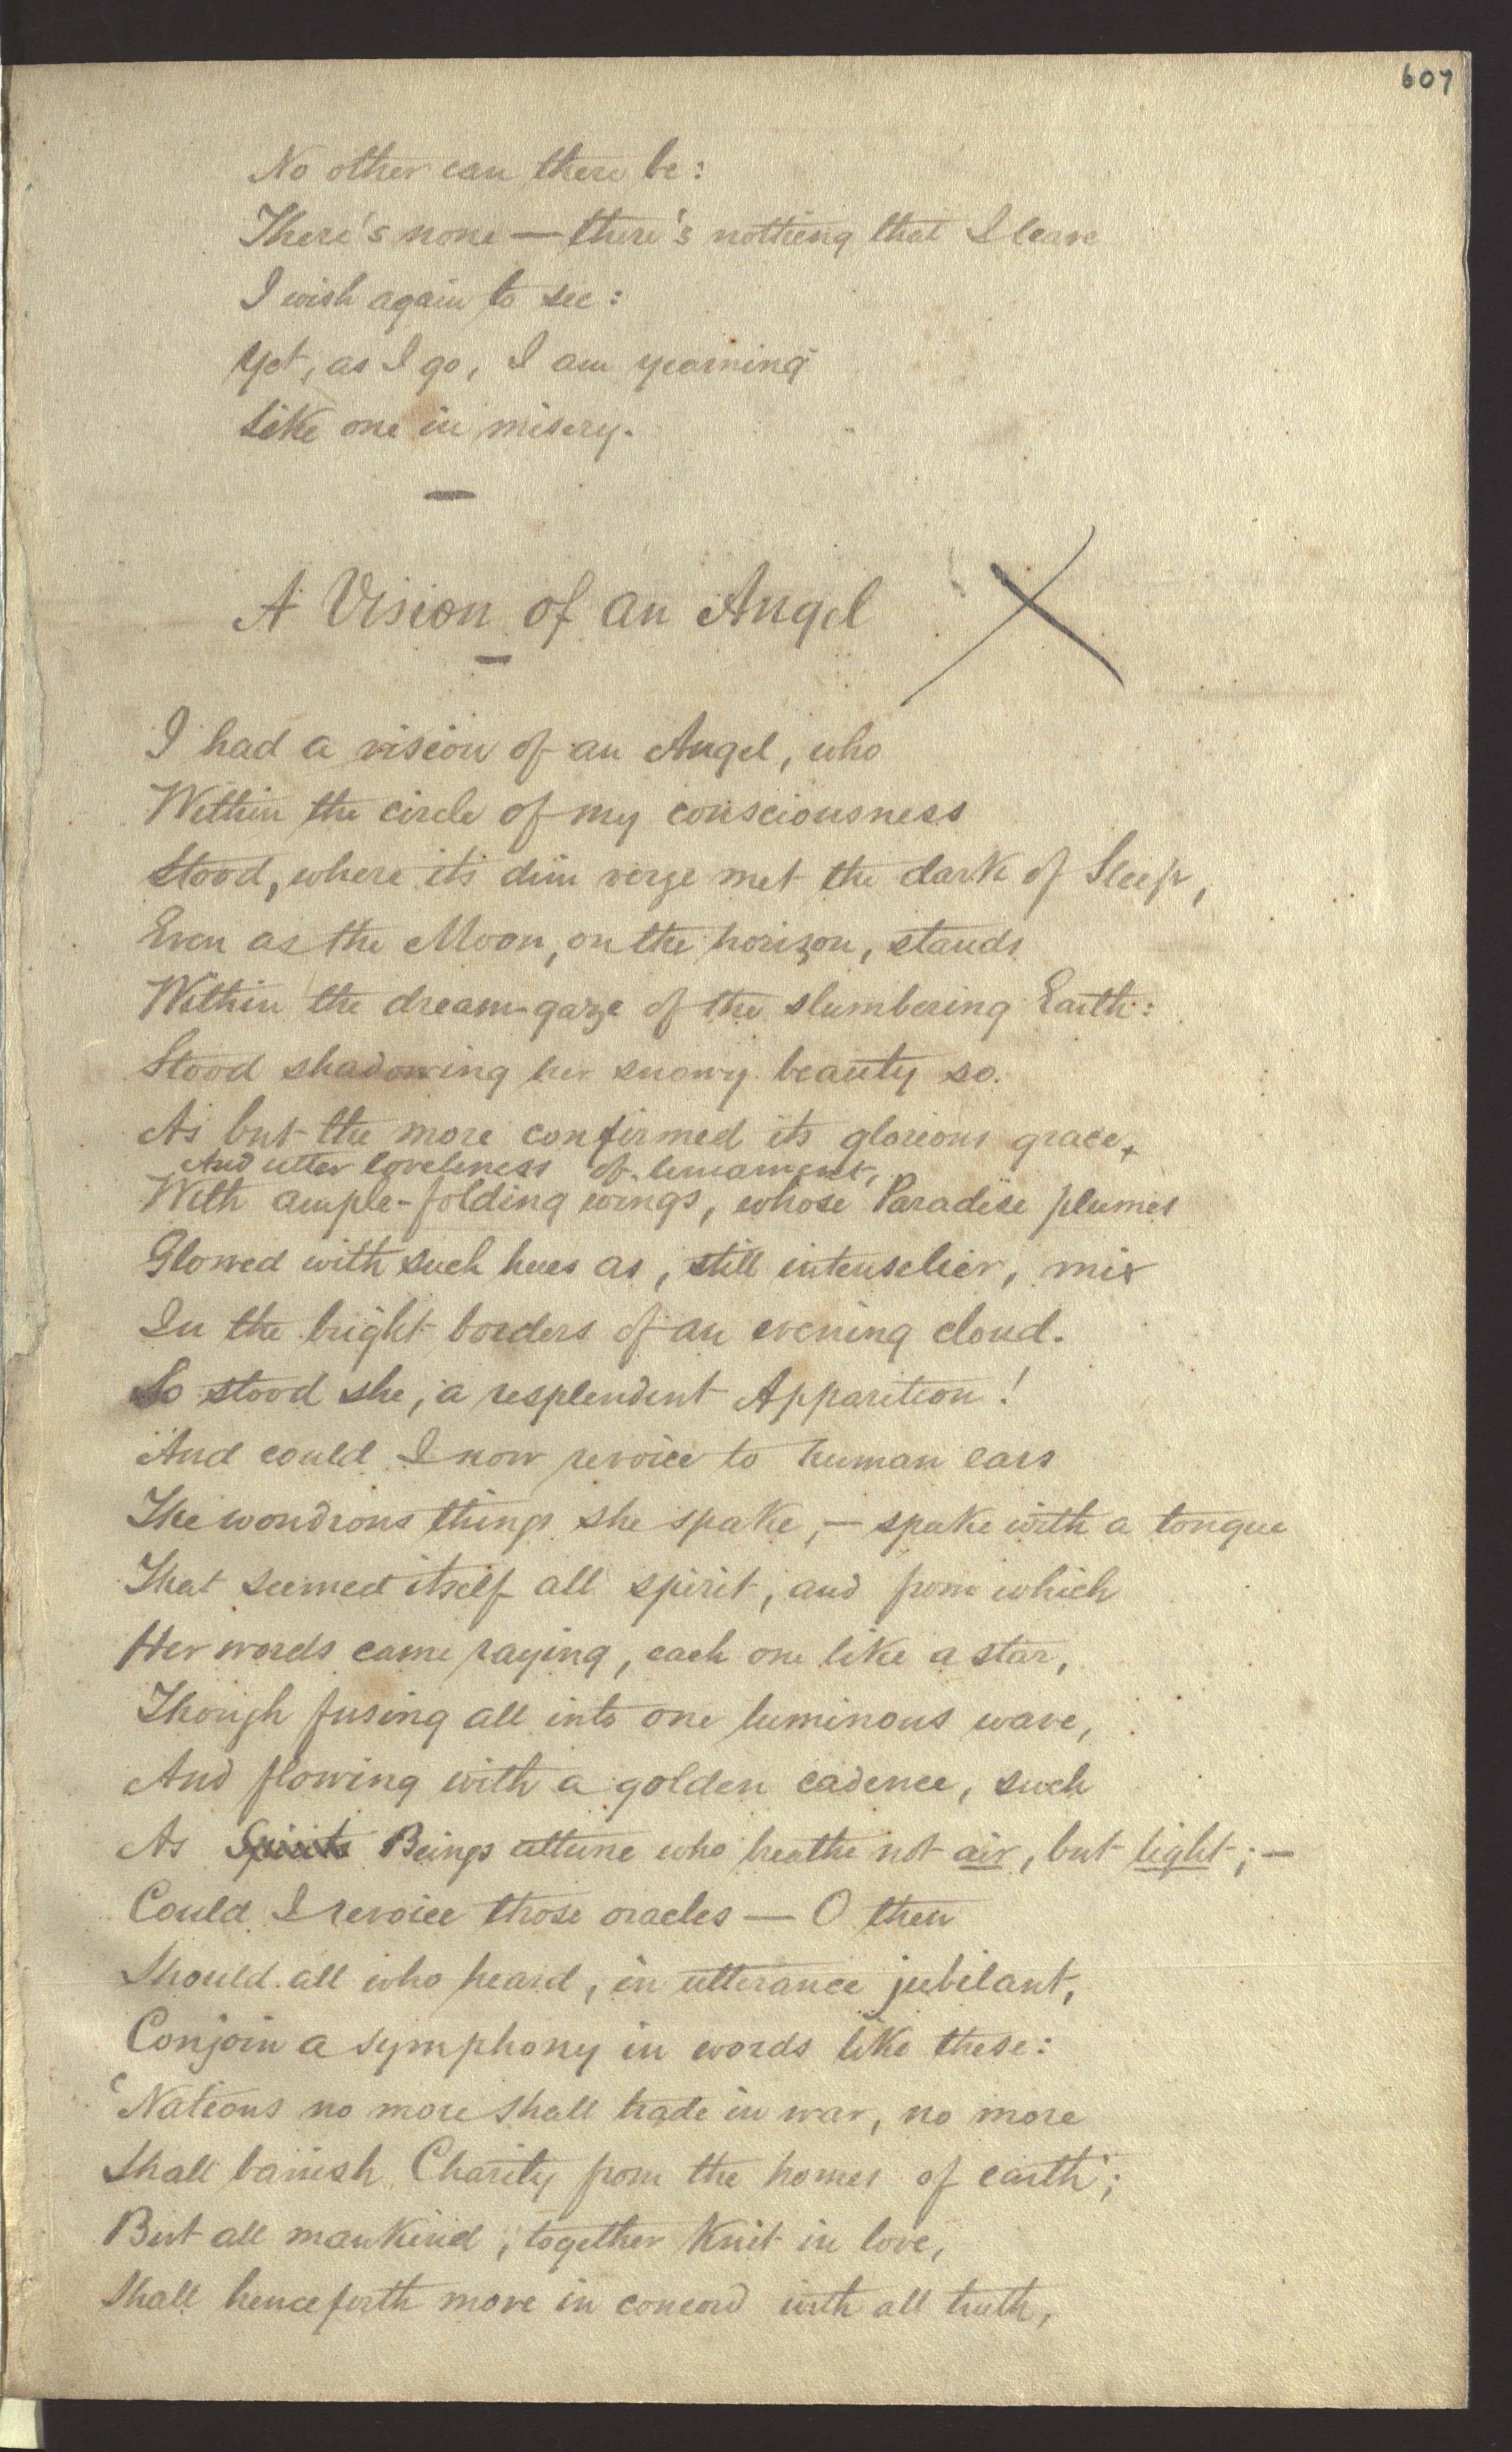 607
No other can there be:
There's none — there's nothing that I leave
I wish again to see:
Yet, as I go, I am yearning
Like one in misery.
A Vision of an Angel
I had a vision of an Angel, who
Within the circle of my consciousness
Stood, where its dim verge met the dark of Sleep,
Even as the Moon, on the horizon, stands
Within the dream-gaze of the slumbering Earth:
Stood shadowing her snowy beauty so.
As but the more confirmed its glorious grace,
And utter loveliness of lineament,
With ample-folding wings, whose Paradise plumes
Glowed with such hues as, still intenselier, mix
In the bright borders of an evening cloud.
So stood she, a resplendent Apparition!
And could I now revoice to human ears
The wondrous things she spake, — spake with a tongue
That seemed itself all spirit, and from which
Her words came raying, each one like a star,
Though fusing all into one luminous wave,
And flowing with a golden cadence, such
As Spirits Beings attune who breathe not air, but light; —
Could I revoice those oracles — O then
Should all who heard, in utterance jubilant,
Conjoin a symphony in words like these:
'Nations no more shall trade in war, no more
Shall banish Charity from the homes of earth;
But all mankind, together knit in love,
Shall henceforth move in concord with all truth,